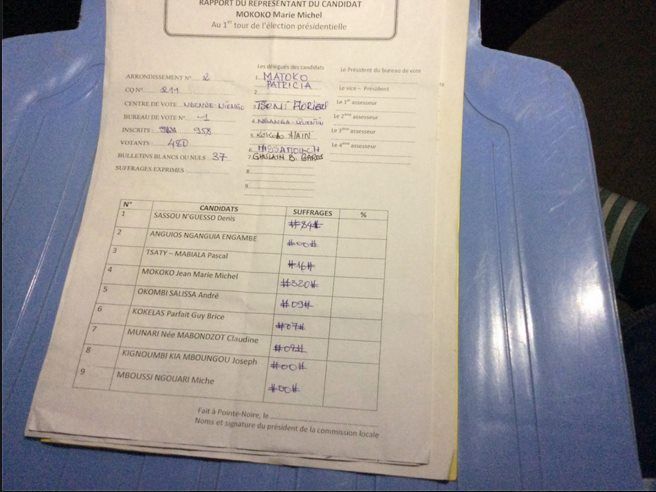 RAPPORT DU REPRESENTANT DU CANDIDAT
MOKOKO Marie Michel
Au 1er tour de l'élection présidentielle
Les délégués des candidats
Le Président du bureau de vote
ARRONDISSEMENT N° 2
1. MATOKO
PATRICIA
Le vice – Président
CQ N° 211
2.
CENTRE DE VOTE
3.
Le 1er assesseur
BUREAU DE VOTE N° 1
4.
Le 2ème assesseur
INSCRITS : 958
5.
Le 3ème assesseur
VOTANTS : 480
6.
Le 4ème assesseur
BULLETINS BLANCS OU NULS : 37
7. GHISLAIN B.
SUFFRAGES EXPRIMES
8.
9.
N° CANDIDATS SUFFRAGES %
1 SASSOU N'GUESSO Denis #84#
2 ANGUIOS NGANGUIA ENGAMBE #00#
3 TSATY – MABIALA Pascal #16#
4 MOKOKO Jean Marie Michel #320#
5 OKOMBI SALISSA André #09#
6 KOKELAS Parfait Guy Brice #07#
7 MUNARI Née MABONDZOT Claudine
8 KIGNOUMBI KIA MBOUNGOU Joseph #00#
9 MBOUSSI NGOUARI Miche #00#
Fait à Pointe-Noire, le
Noms et signature du président de la commission locale